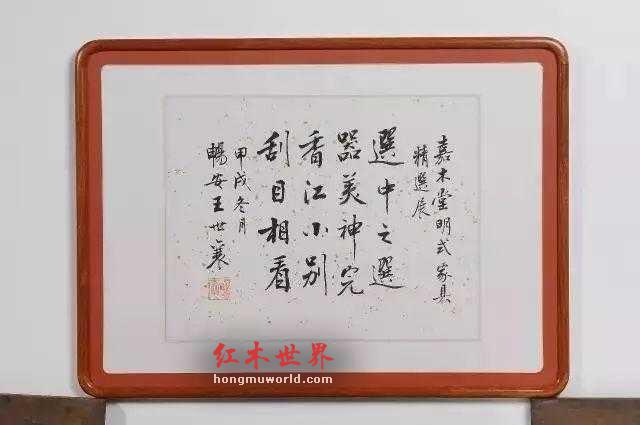 嘉木堂明式家具
精選展
選中之選
器美神完
香江小別
刮目相看
甲戌冬月
暢安王世襄
红木世界
hongmuworld.com